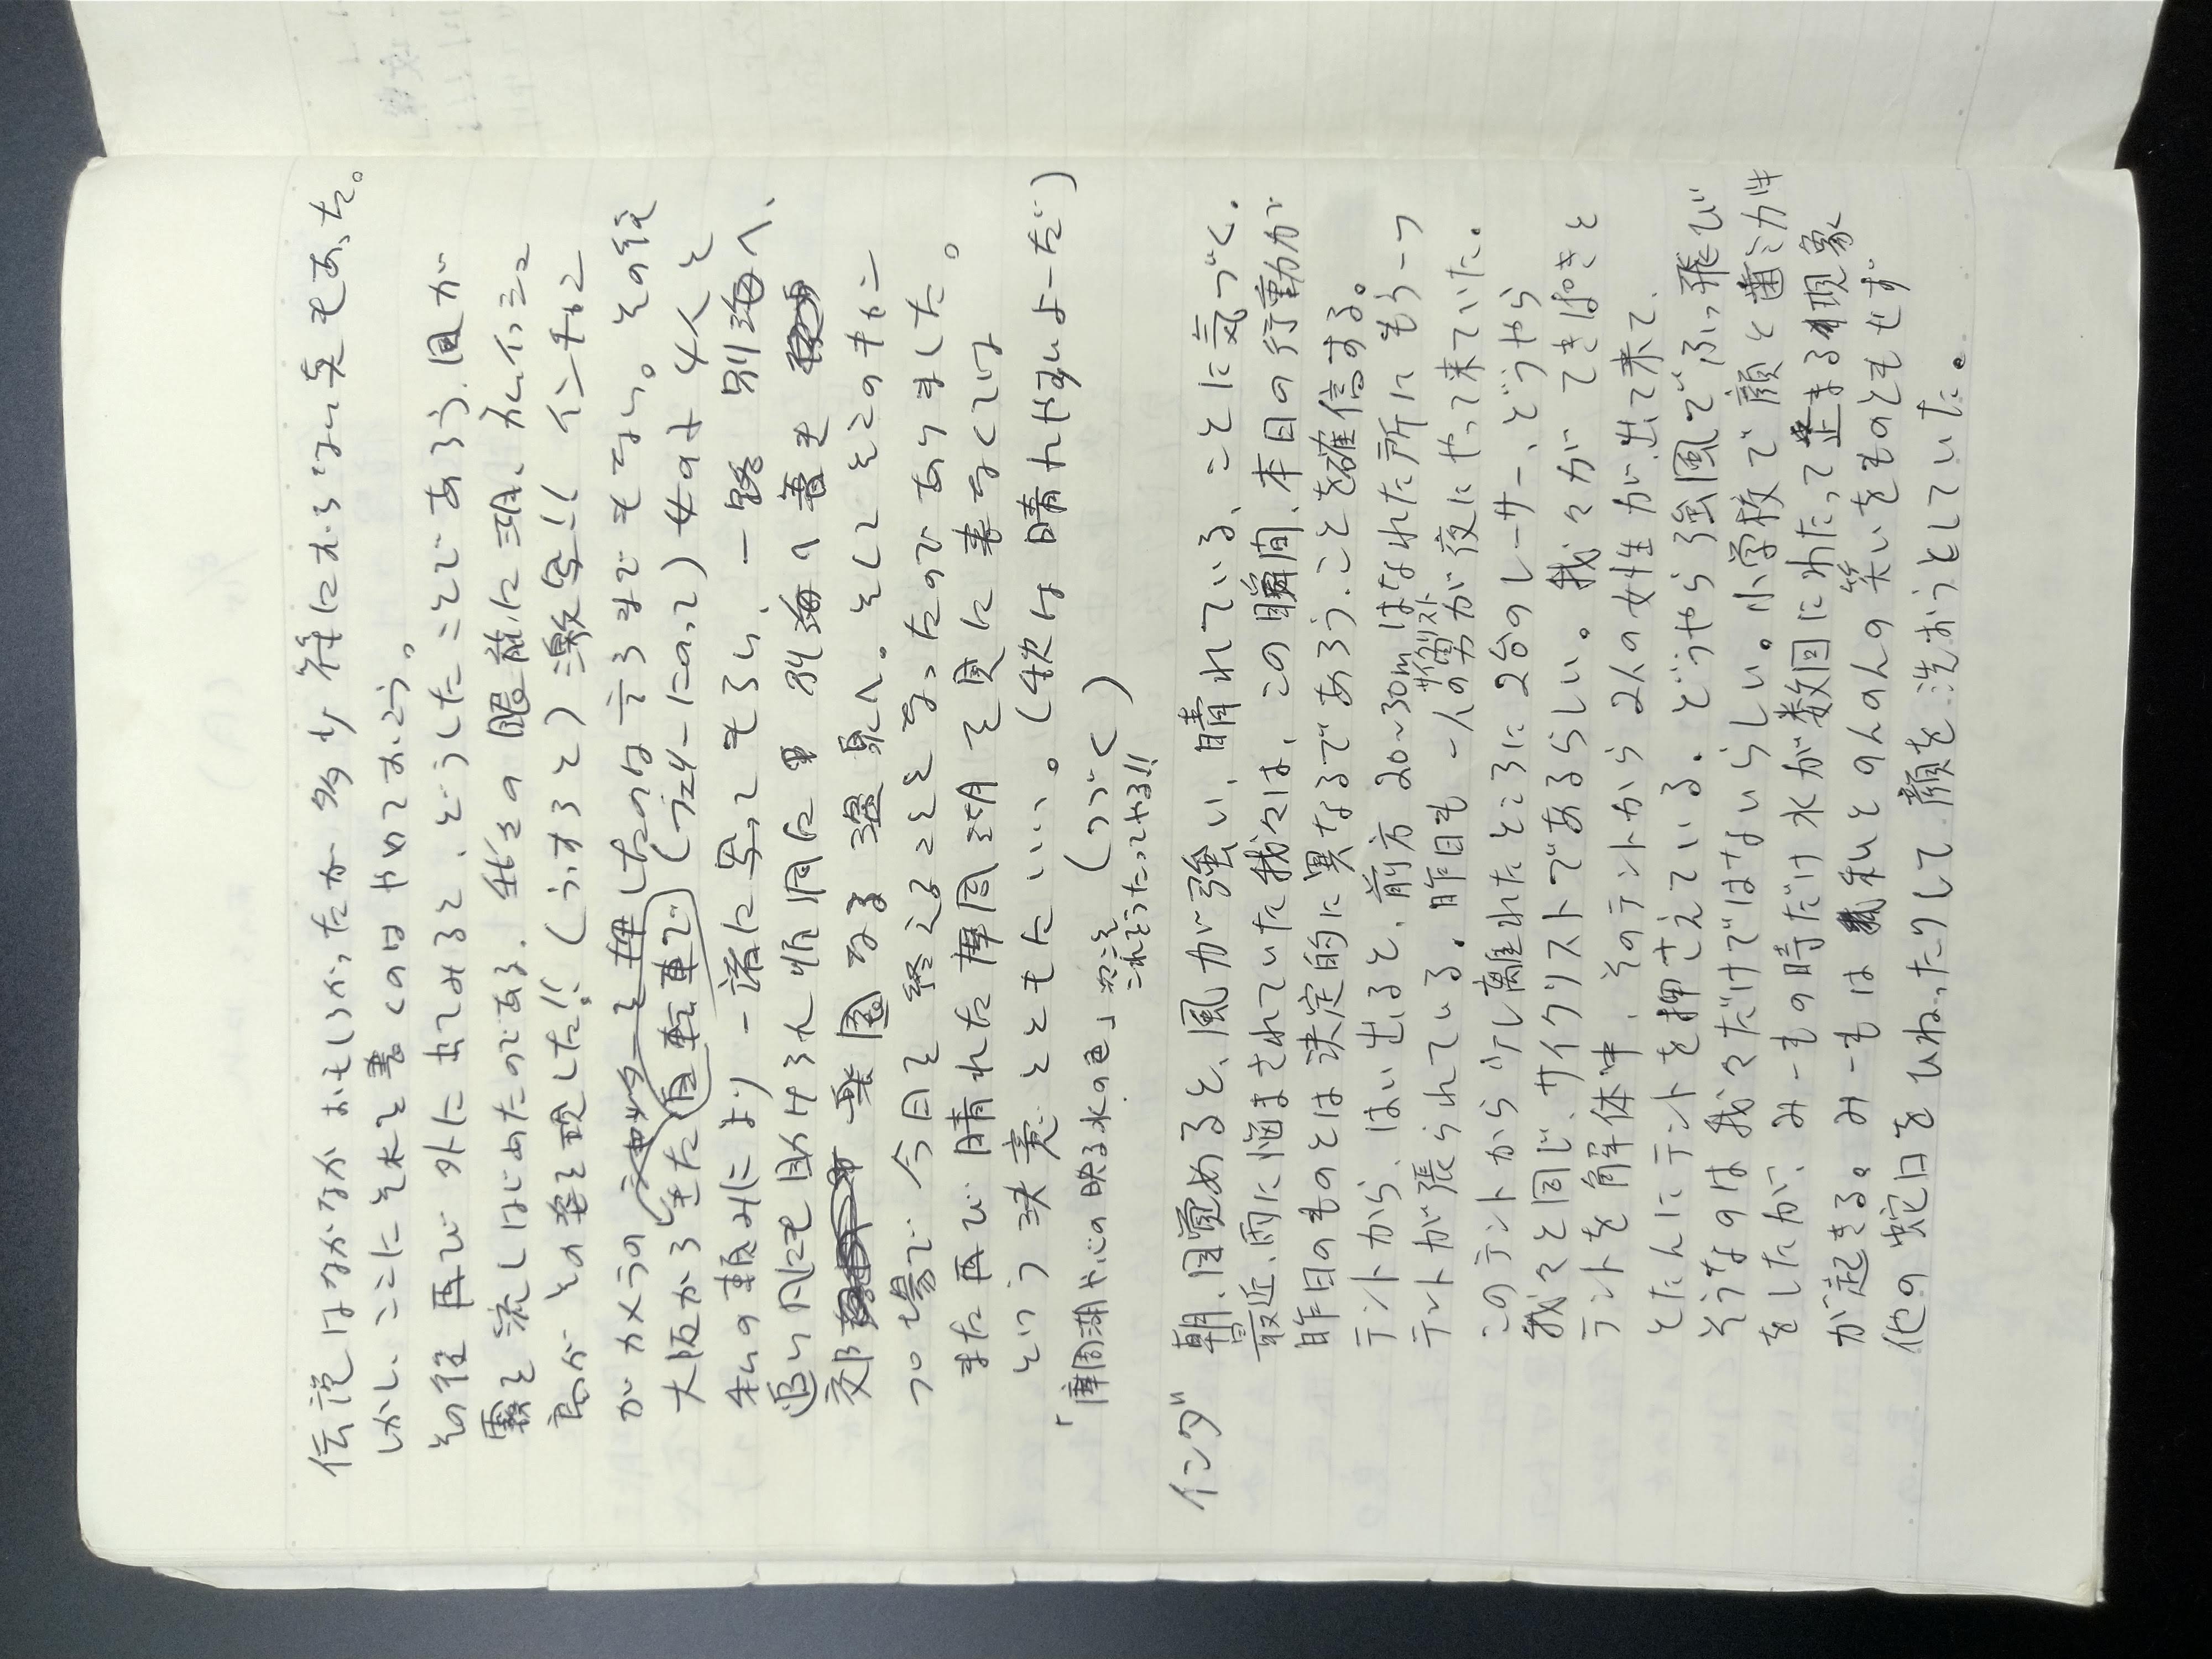 伝説はなかなかおもしろかったが多少符におちない点もあった。
しかし、ここにそれを書くのはやめておこう。
その後 再び 外に出てみると、どうしたことであろう、風が
霧を流しはじめたのである。我々の眼前に湖、カムイシュ
島が その姿を現した!! (うっすらと) 激写!! インチョ
がカメラの したのは言うまでもない。その後
大阪から来た自転車で (フェリーにのって) 女のよ4人と
私の頼みにより 一諸に写ってもらい、一路 別海へ、
追い風にも助けられ 順調に 別海へ着き
交郎 楽園なる温泉へ。そしてそこのキャン
プ場で 今日を終えることとなったのでありました。
また再び 晴れた摩周湖を見に来なくては
という決意とともに…。(秋は晴れやすいよーだ)
「摩周湖や心の映る水の色」 (つづく)
イング 朝、目覚めると、風が強い、晴れている、ことに気づく。
最近、雨に悩まされていた我々は、この瞬間、本日の行動が
昨日のものとは決定的に異なるであろう、ことを確信する。
テントから、はい出ると、前方 20~30m はなれた所に もう一つ
テントが張られている。昨日も 一人の男が 夜にやって来ていた。
サイクリスト
このテントから少し離れたところに 2台のレーサー、どうやら
我々と同じ、サイクリストであるらしい。我々が てきぱきと
テントを解体中、そのテントから 2人の女性が出て来て、
とたんにテントを押さえている。どうやら強風で ふっ飛び
そうなのは我々だけではないらしい。小学校で 顔と歯ミガキ
をしたが、みーもの時だけ水が数回にわたって止まる現象
が起きる。みーもは 私とのんのんの笑いをものともせず、
他の蛇口をひねったりして 顔を洗おうとしていた。